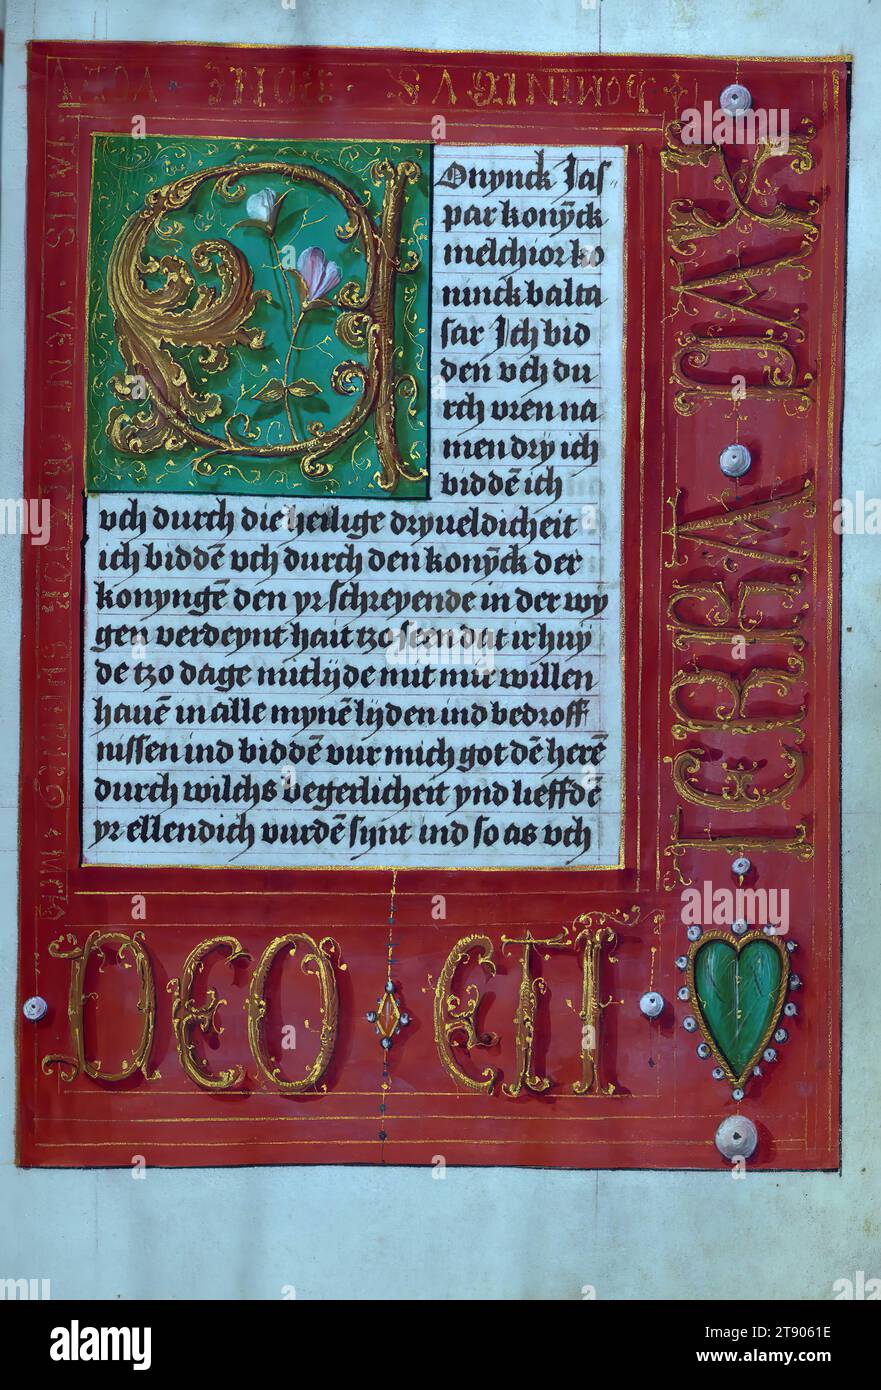 Onynck Jas-
par konÿck
melchior ko
ninck balta
sar Ich bid
den vch du
rch vren na
men dry ich
biddē ich
vch durch die heilige dryueldicheit
ich biddē vch durch den konÿck der
konyngē den yr schreyende in der wy
gen verdeynt hait tzo seen dat ir huy
de tzo dage mitlijde mit mir willen
hauē in alle mynē lijden ind bedroff
nissen ind biddē vur mich got dē herē
durch wilchs begerlicheit ynd lieffdē
yr ellendich vurdē synt ind so as vch
DEO ET I
TERRA PAX
alamy
Image ID: 2T9061E
www.alamy.com